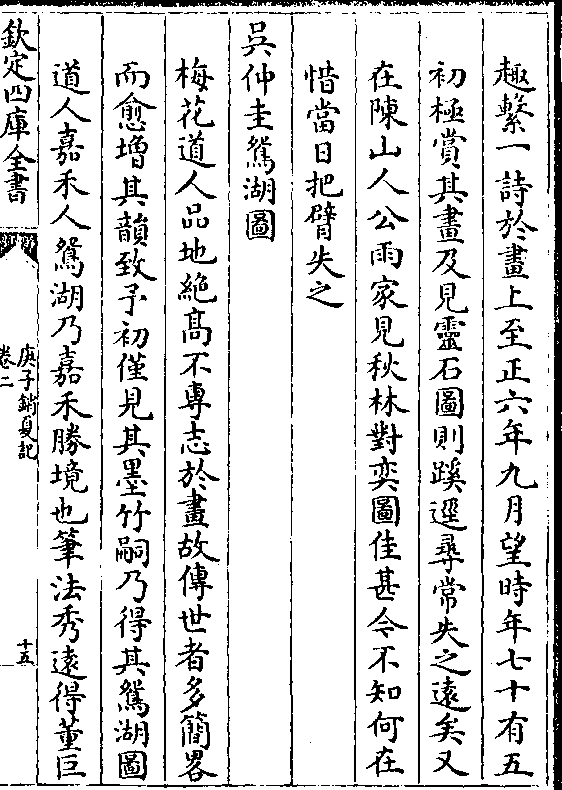 趣繫一詩於畫上至正六年九月望時年七十有五
初極賞其畫及見靈石圖則蹊逕尋常失之遠矣又
在陳山人公雨家見秋林對奕圖佳甚今不知何在
惜當日把臂失之
吳仲圭鴛湖圖
梅花道人品地絶髙不專志於畫故傳世者多簡畧
而愈增其韻致予初僅見其墨竹嗣乃得其鴛湖圖
道人嘉禾人鴛湖乃嘉禾勝境也筆法秀遠得董巨
欽定四庫全書
庚子銷夏記
卷二
十五